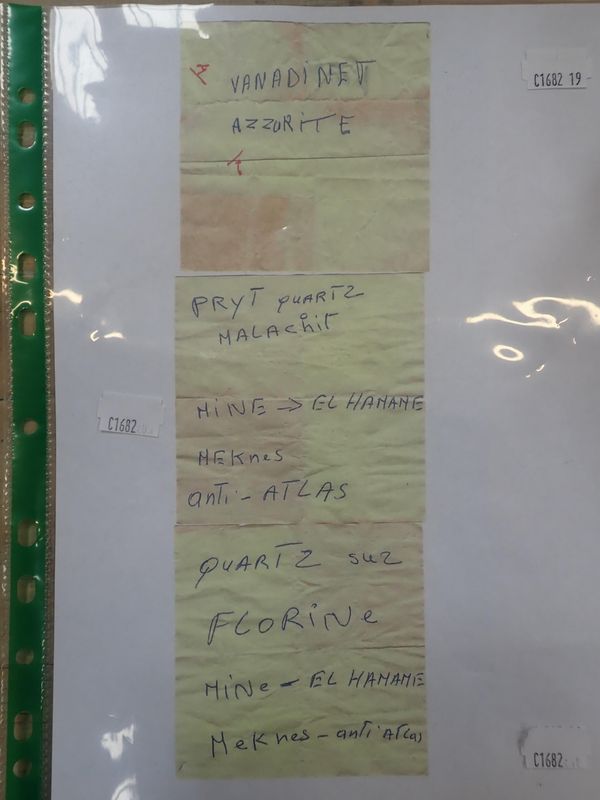 VANADiNET
C1682 19
AZZURiTE
PRYT QUARTZ
MALACHiT
MiNE → EL HAMAME
C1682
MEKNes
anti-ATLAS
QUARTZ SUZ
FLORiNe
MiNe - EL HAMAME
MeKNes - anti ATLas
C1682